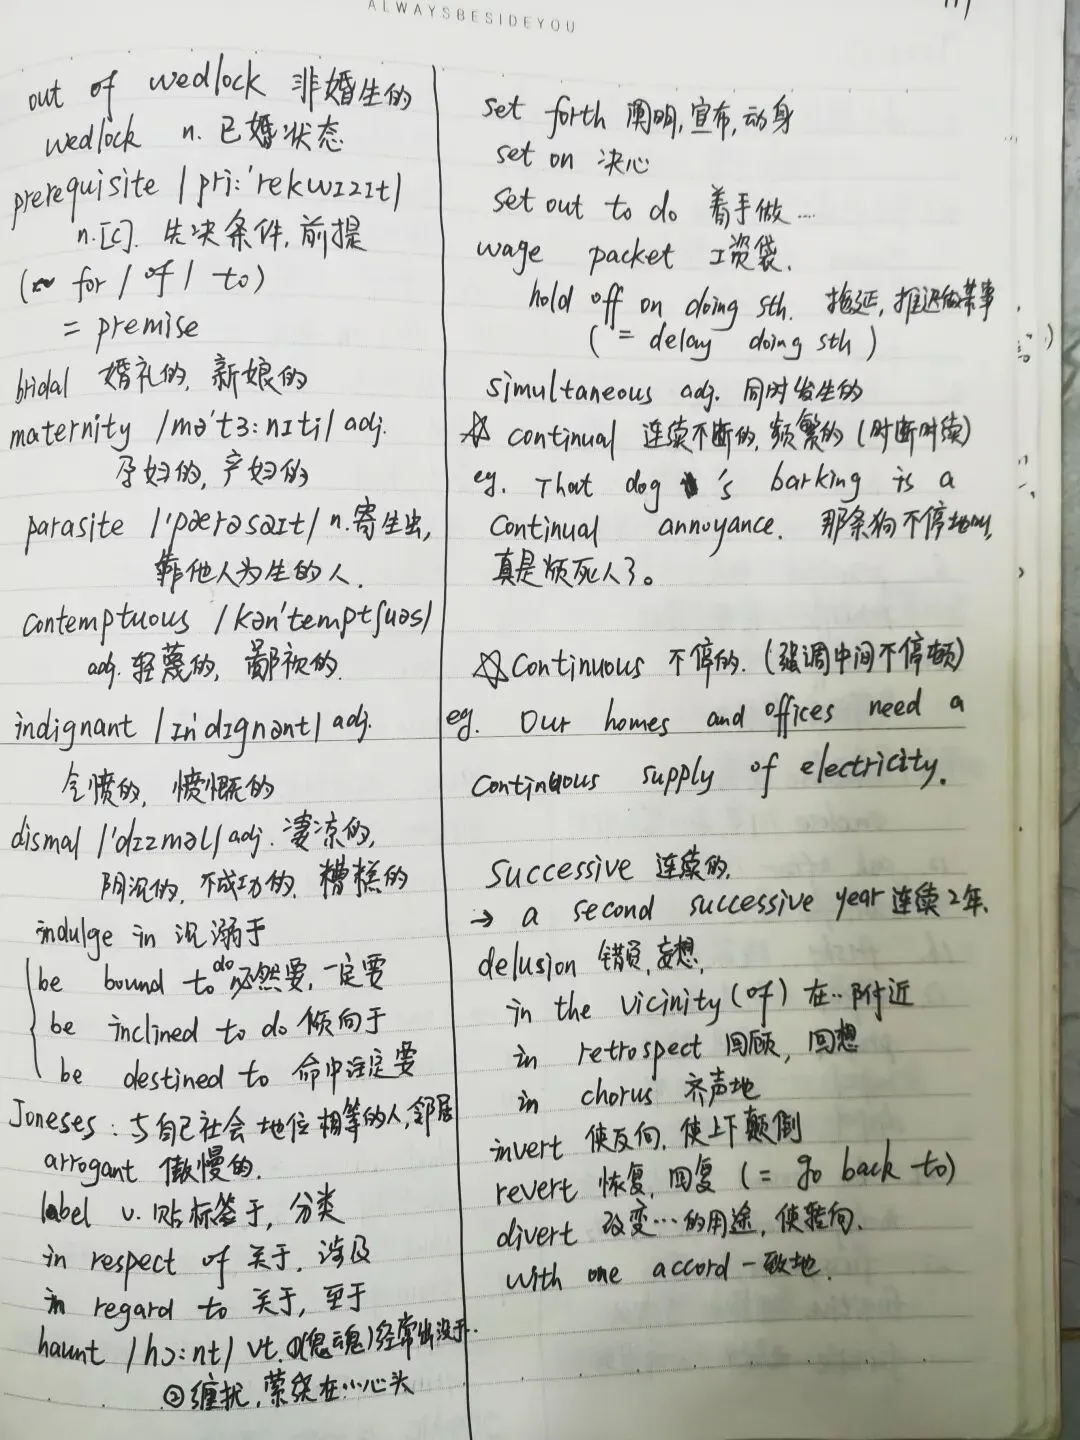 ALWAYSBESIDEYOU
out of wedlock 非婚生的
wedlock n. 已婚状态
prerequisite /pri:'rekwɪzɪt/
n.[C]. 先决条件, 前提
(~ for / of / to)
= premise
bridal 婚礼的, 新娘的
maternity /mə'tɜ:nɪti/ adj.
孕妇的, 产妇的
parasite /'pærəsaɪt/ n. 寄生虫,
靠他人为生的人.
contemptuous /kən'temptʃuəs/
adj. 轻蔑的, 鄙视的.
indignant /ɪn'dɪgnənt/ adj.
愤的, 愤慨的
dismal /'dɪzməl/ adj. 凄凉的,
阴沉的, 不成功的, 糟糕的
indulge in 沉溺于
be bound to do 必然要, 一定要
be inclined to do 倾向于
be destined to 命中注定要
Joneses: 与自己社会地位相等的人, 邻居
arrogant 傲慢的.
label v. 贴标签于, 分类
in respect of 关于, 涉及
in regard to 关于, 至于
haunt /hɔ:nt/ vt. ①(鬼魂)经常出没于.
②缠扰, 萦绕在心头
set forth 阐明, 宣布, 动身
set on 决心
set out to do 着手做...
wage packet 工资袋.
hold off on doing sth. 拖延, 推迟做某事
(= delay doing sth)
simultaneous adj. 同时发生的
☆ continual 连续不断的, 频繁的 (时断时续)
eg. That dog 's barking is a
continual annoyance. 那条狗不停地叫,
真是烦死人了。
☆ Continuous 不停的. (强调中间不停顿)
eg. Our homes and offices need a
continuous supply of electricity.
Successive 连续的.
→ a second successive year 连续2年.
delusion 错觉, 妄想,
in the vicinity (of) 在..附近
in retrospect 回顾, 回想
in chorus 齐声地
invert 使反向, 使上下颠倒
revert 恢复, 回复 (= go back to)
divert 改变…的用途, 使转向.
with one accord 一致地.